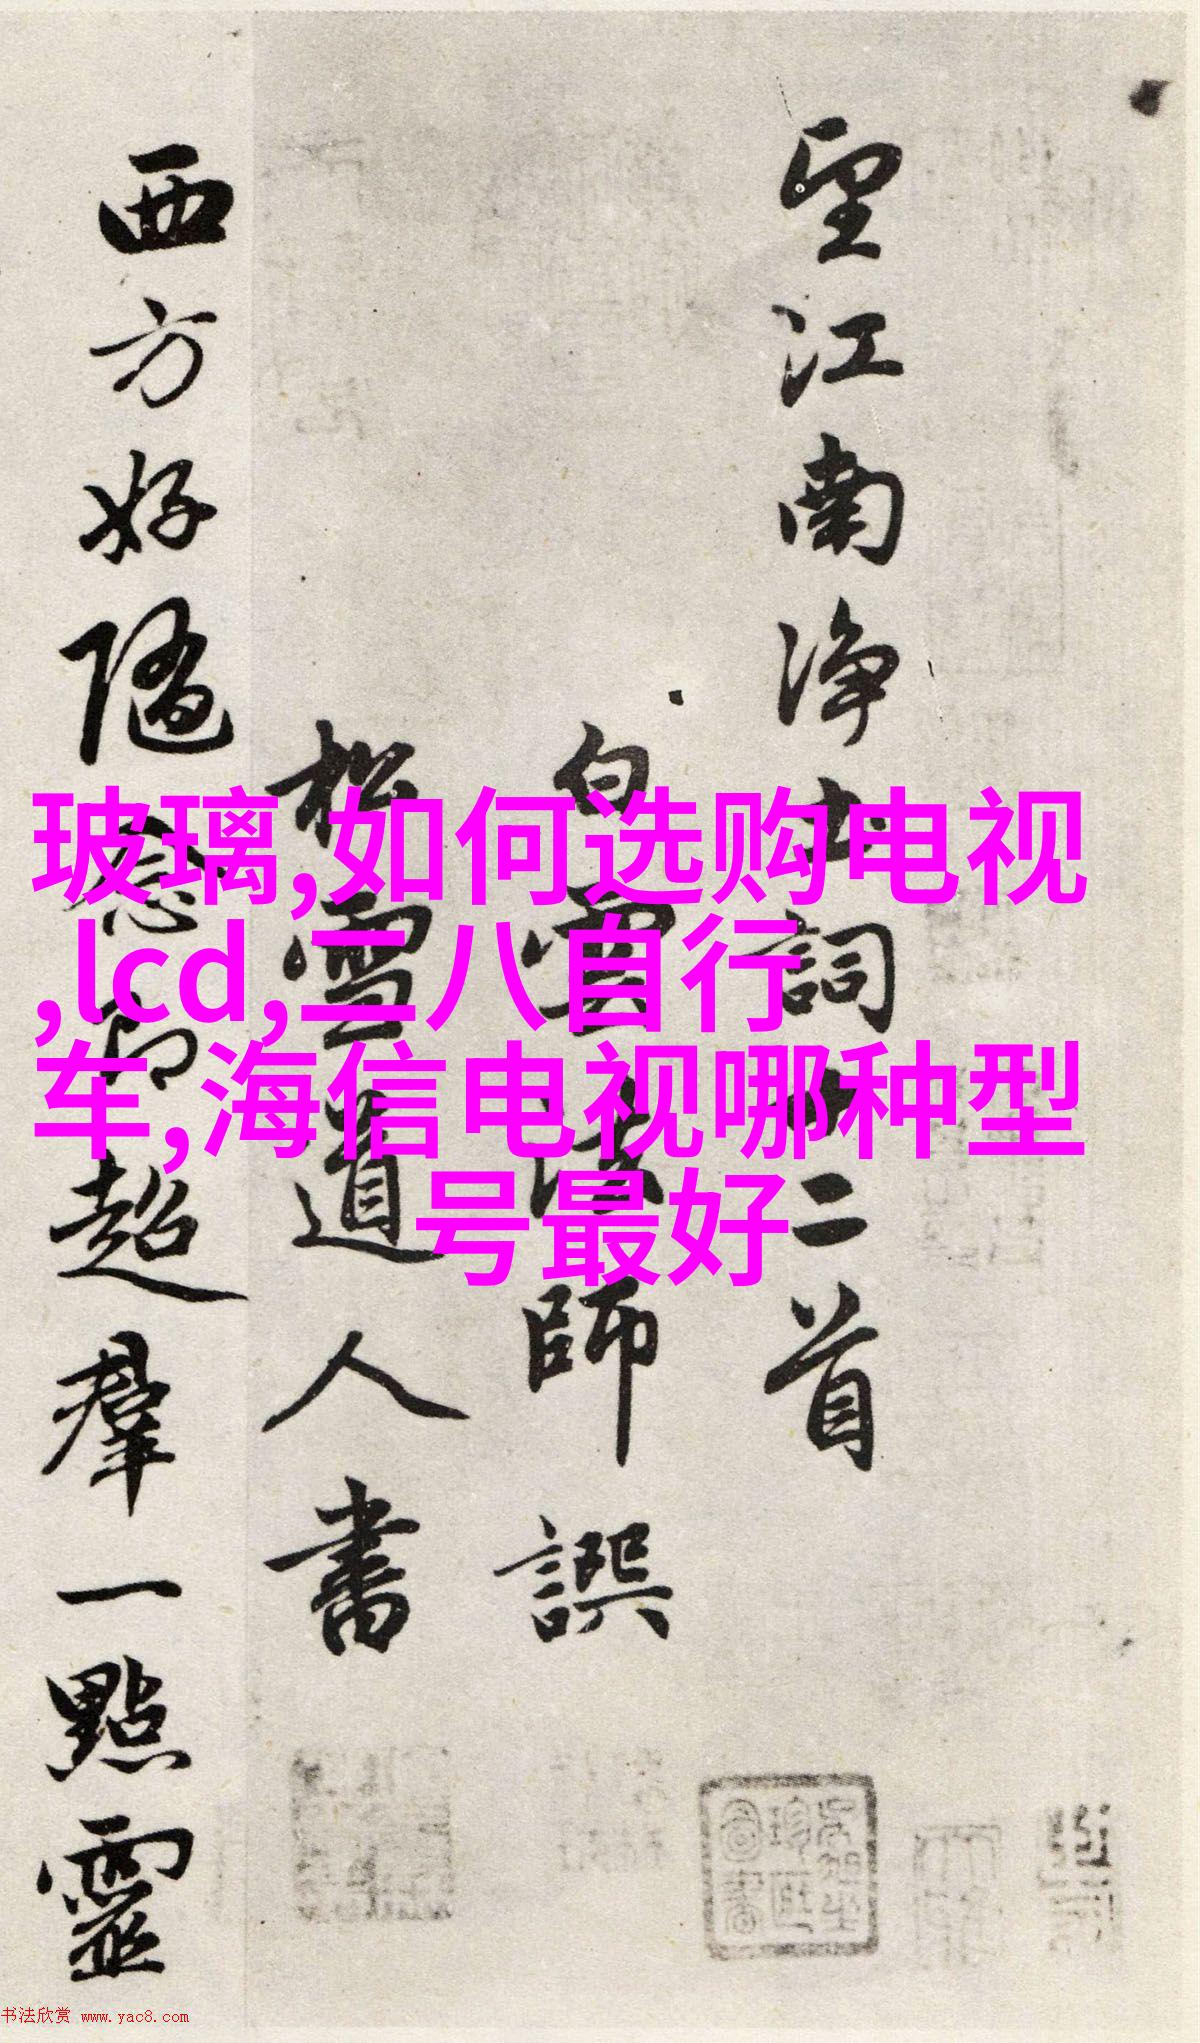 望江南净土詞十二首
白雲法師譔
松雪道人書
西方好隨念即超羣一點靈
玻璃,如何选购电视
,lcd,二八自行
车,海信电视哪种型
号最好
书法欣赏 www.yac8.com